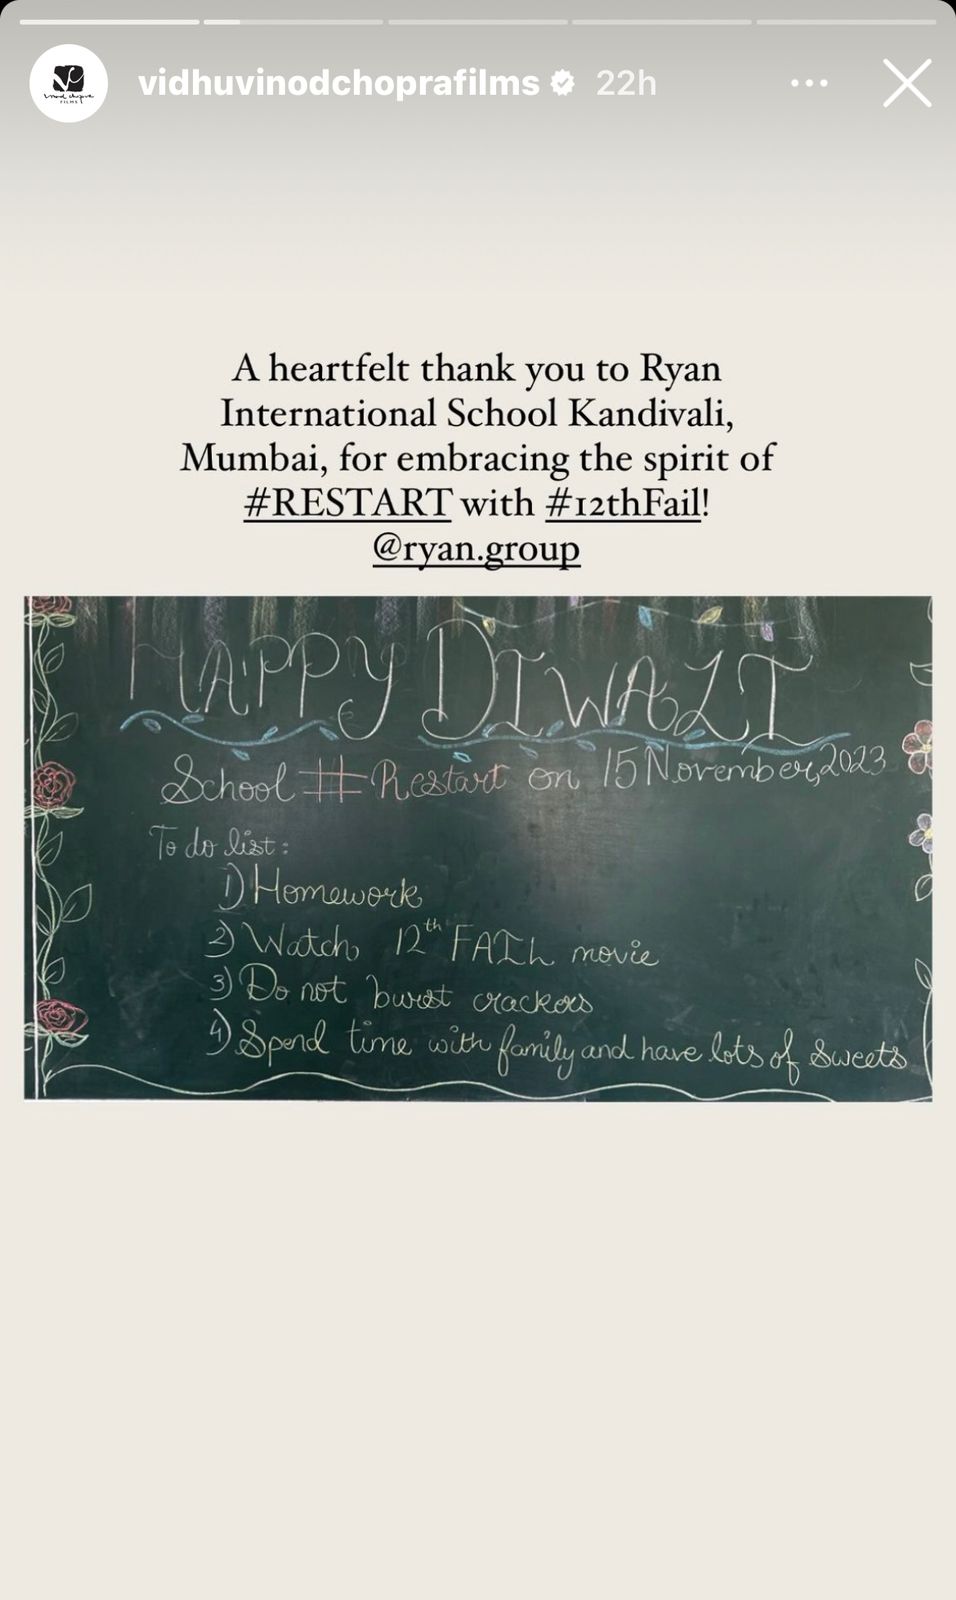 vidhuvinodchoprafilms 22h
A heartfelt thank you to Ryan
International School Kandivali,
Mumbai, for embracing the spirit of
#RESTART with #12thFail!
@ryan.group
HAPPY DIWALI
School #Restart on 15 November, 2023
To do list:
1) Homework
2) Watch 12th FAIL movie
3) Do not burst crackers
4) Spend time with family and have lots of sweets